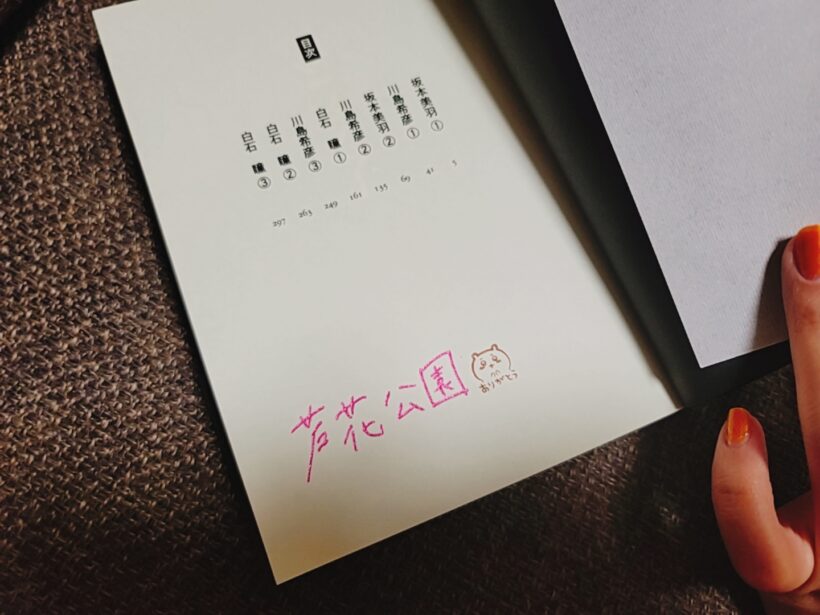 目次
坂本美羽 ① 5
川島希彦 ① 41
坂本美羽 ② 69
川島希彦 ② 135
白石 瞳 ① 161
川島希彦 ③ 249
白石 瞳 ② 263
白石 瞳 ③ 297
芦花公園
ありがとう